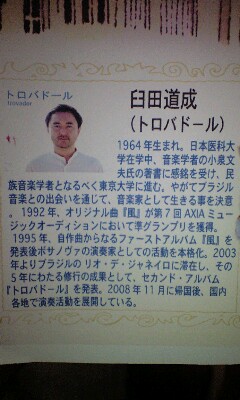 トロバドール
trovador
臼田道成
(トロバドール)
1964年生まれ。日本医科大
学在学中、音楽学者の小泉文
夫氏の著書に感銘を受け、民
族音楽学者となるべく東京大学に進む。やがてブラジル
音楽との出会いを通じて、音楽家として生きる事を決意
。1992年、オリジナル曲『風』が第7回AXIAミュー
ジックオーディションにおいて準グランプリを獲得。
1995年、自作曲からなるファーストアルバム『風』を
発表後ボサノヴァの演奏家としての活動を本格化。2003
年よりブラジルの リオ・デ・ジャネイロに滞在し、その
5年にわたる修行の成果として、セカンド・アルバム
『トロバドール』を発表。2008年11月に帰国後、国内
各地で演奏活動を展開している。